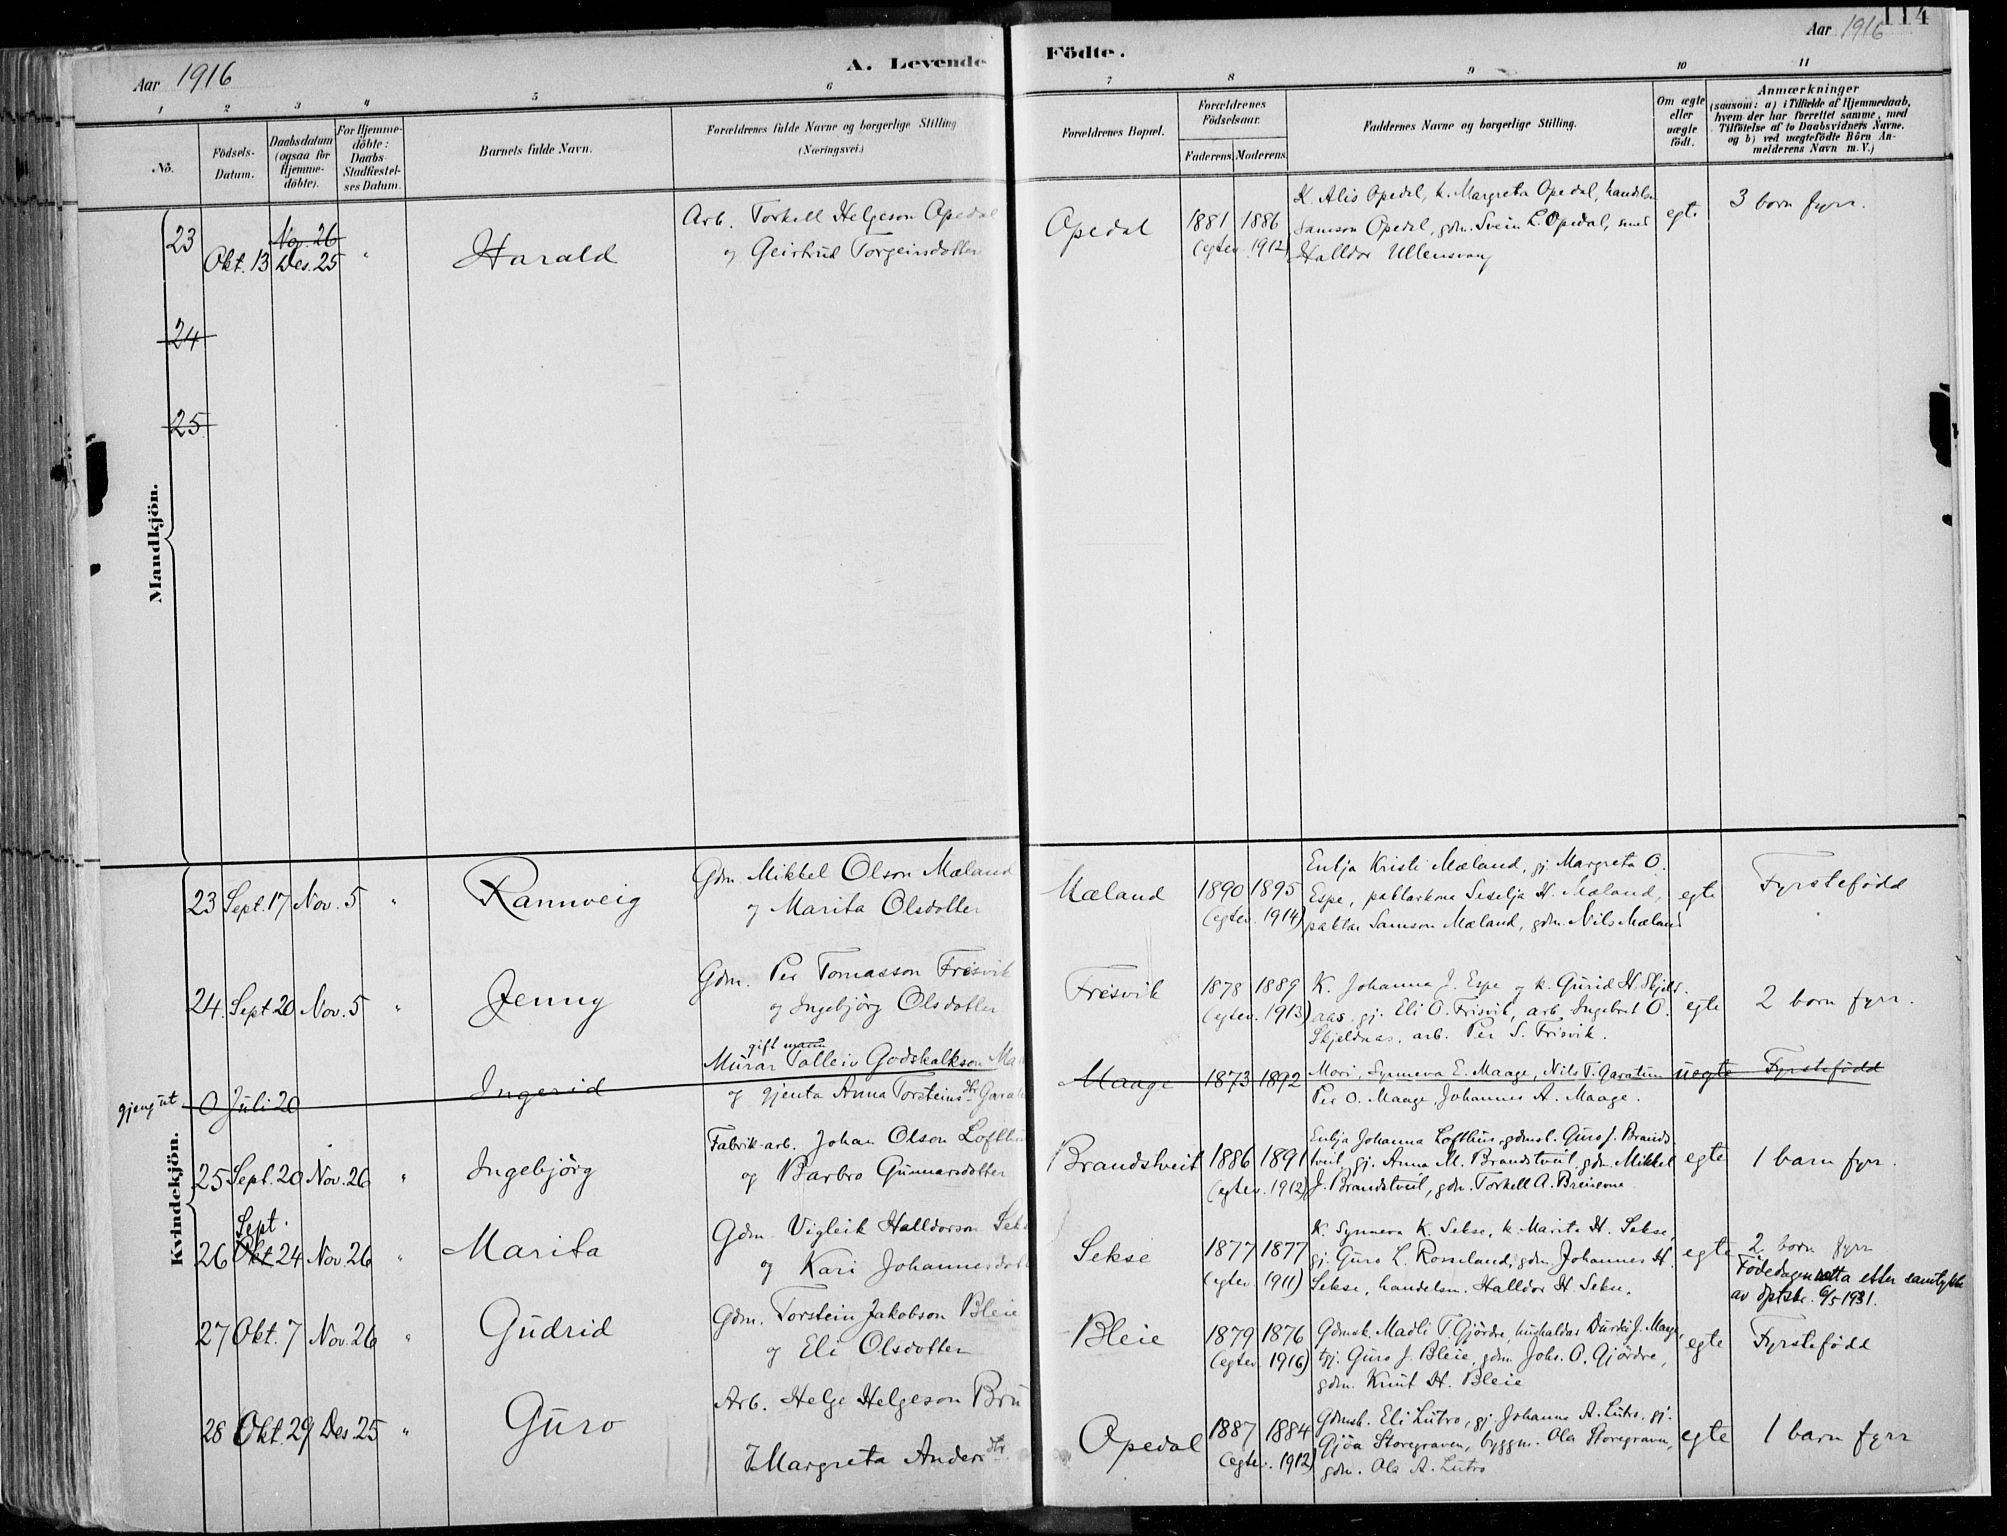 Aar 1916
A. Levende Födte.
Aar 1916
114
1 2 3 4 5 6 7 8 9 10 11
No.
Födsels-Datum.
Daabsdatum (ogsaa for Hjemme-döbte).
For Hjemme-döbte: Daabs-Stadfæstel-ses Datum.
Barnets fulde Navn.
Forældrenes fulde Navne og borgerlige Stilling
(Næringsvei.)
Forældrenes Bopæl.
Forældrenes Födselsaar.
Faderens. Moderens.
Faddernes Navne og borgerlige Stilling.
Om ægte eller uægte födt.
Anmærkninger
(saasom: a) i Tilfælde af Hjemmedaab, hvem der har forrettet samme, med Tilföielse af to Daabsvidners Navne, og b) ved uægtefödte Börn An-melderens Navn m. V.)
Mandkjön.
23 Okt. 13 Nov. 26 Des. 25 " Harald
Arb. Torkell Helgeson Opedal
og Geirtrud Torgeirsdotter
Opedal 1881 1886
(egtev. 1912)
K. Alis Opedal, k. Margreta Opedal, handelsm
Samson Opedal, gdm. Svein L. Opedal, smed
Halldor Ullensvang
egte 3 born fyrr.
24
25
Kvindekjön.
23 Sept. 17 Nov. 5 " Rannveig
Gdm. Mikkel Olson Mæland
og Marita Olsdotter
Mæland 1890 1895
(egtev. 1914)
Enkja Kristi Mæland, gj. Margreta O.
Espe, paktarkona Seselja H. Mæland,
paktar Samson Mæland, gdm. Nils Mæland
egte Fyrstefødd
24. Sept 20 Nov. 5 " Jenny
Gdm. Per Tomasson Freisvik
og Ingebjörg Olsdotter
Freisvik 1878 1889
(egtev. 1913)
K. Johanna J. Espe og k. Gurid H. Skjeld-
aas, gj. Eli O. Frisvik, arb. Ingebret O.
Skjeldnas, arb. Per S. Frisvik.
egte 2 born fyrr.
gjeng ut 0 Juli 20 Ingerid
gift mann
Murar Tolleiv Godskalkson Ma
og gjenta Anna Torsteinsdtr Garat
Maage 1873 1892
Mori, Synneva E. Maage, Nils T. Garatun
Per O. Maage, Johannes A. Maage.
uegte Fyrstefødd
25 Sept. 20 Nov. 26 " Ingebjörg
Fabrik-arb. Johan Olson Lofthu
og Barbro Gunnarsdotter
Brandstveit 1886 1891
(egtev. 1912)
Enkja Johanna Lofthus, gdmsk. Guro J. Brands-
tveit, gj. Anna M. Brandstveit, gdm. Mikkel
J. Brandstveit, gdm. Torkell A. Breisone
egte 1 barn fyrr.
26 Sept. Okt 24 Nov. 26 " Marita
Gdm. Vigleik Halldorson Seks
og Kari Johannesdott
Sekse 1877 1877
(egtev. 1911)
K. Synneva K. Sekse, k. Marita H. Sekse,
gj. Guro L. Rosseland, gdm. Johannes H.
Sekse, handelsm. Halldor H. Sekse.
egte 2 born fyrr
Fødedagen retta etter samtykke
av dptsbr. 6/5 1931.
27 Okt. 7 Nov. 26 " Gudrid
Gdm. Torstein Jakobson Bleie
og Eli Olsdotter
Bleie 1879 1876
(egtev. 1916)
Gdmsk. Madli T. Gjördre, hushaldar Durdei J. Maage,
tgj. Guro J. Bleie, gdm. Johs. O. Gjördre,
gdm. Knut H. Bleie
egte Fyrstefødd
28 Okt. 29 Des. 25 " Guro
Arb. Helge Helgeson Bru
Margreta Andersdtr.
Opedal 1887 1884
(egtev. 1912)
Gdmsk. Eli Lutro, gj. Johanna A. Lutro, gj.
Gjöa Storegraven, byggm. Ola Storegraven,
gdm. Ola A. Lutro
egte 1 barn fyrr